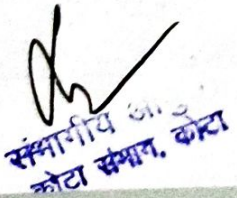 संभागीय
कोटा संभाग, कोटा